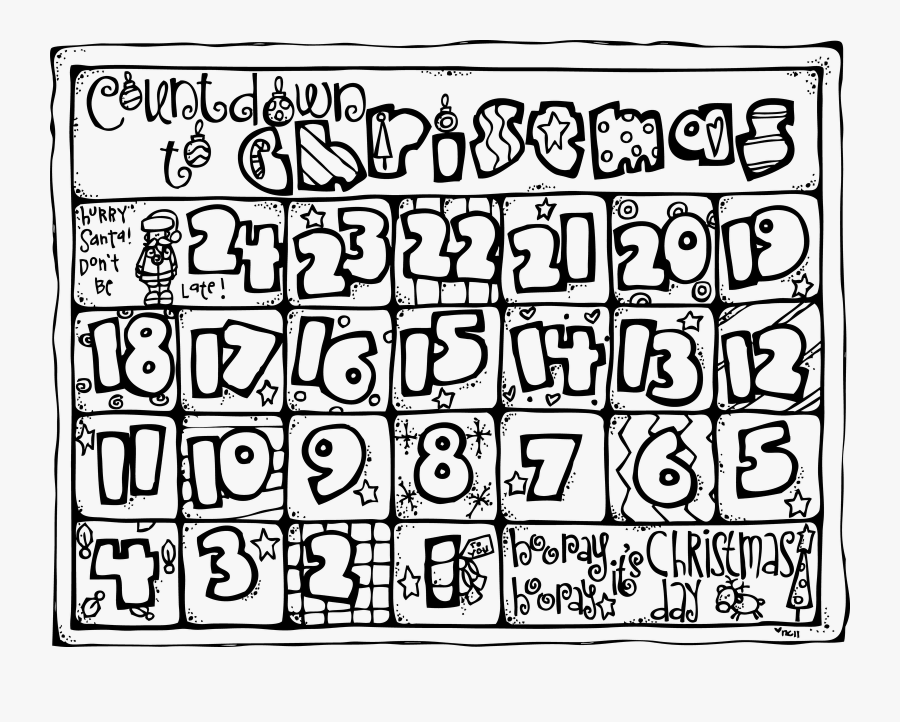 Countdown
to Christmas
"hurry
Santa!
Don't
Be
Late!
24 23 22 21 20 19
18 17 16 15 14 13 12
11 10 9 8 7 6 5
4 3 2 1
to
you
hooray
hooray
it's
Christmas
day
nc11